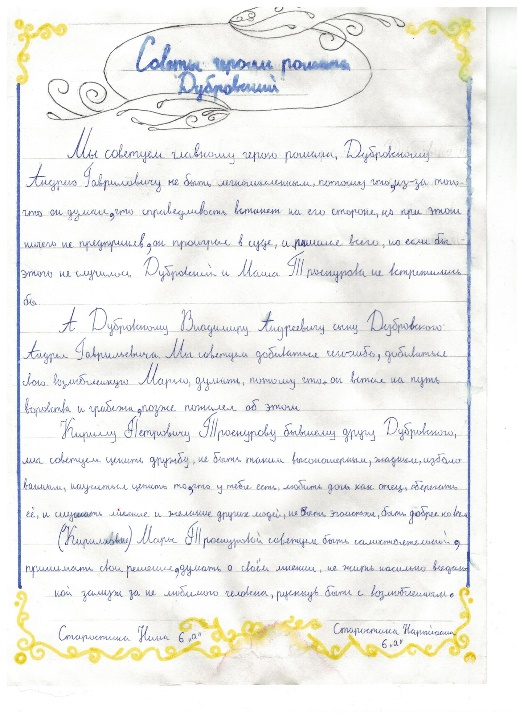 Советы героям романа
Дубровский
Мы советуем главному герою романа, Дубровскому
Андрею Гавриловичу не быть легкомысленным, потому что, из-за того
что он думал, что справедливость встанет на его сторону, но при этом
ничего не предпринев, он проиграл в суде, и решился всего, но если бы
этого не случилось Дубровский и Маша Троекурова не встретились
бы.
А Дубровскому Владимиру Андреевичу сыну Дубровского
Андрея Гавриловича Мы советуем добиваться чего-либо, добиваться
свою возлюбленную Марию, думать, потому что он встал на путь
воровства и грабежа, позже пожалел об этом
Кирилу Петровичу Троекурову бывшему другу Дубровского,
мы советуем ценить дружбу, не быть таким высокомерным, жадным, избало
ванным, научиться ценить то, что у тебя есть, любить дочь как отец, оберегать
её, и слушать мнение и желание других людей, не быть эгоистом, быть добрее ко всем
(Кириловне) Марье Троекуровой советуем быть самостоятельной,
принимать свои решения, думать о своём мнении, не жить насильно
замужи за не любимого человека, рискнув быть с возлюбленным.
Старостина Нина 6 „а"
Старостина
6 „а"